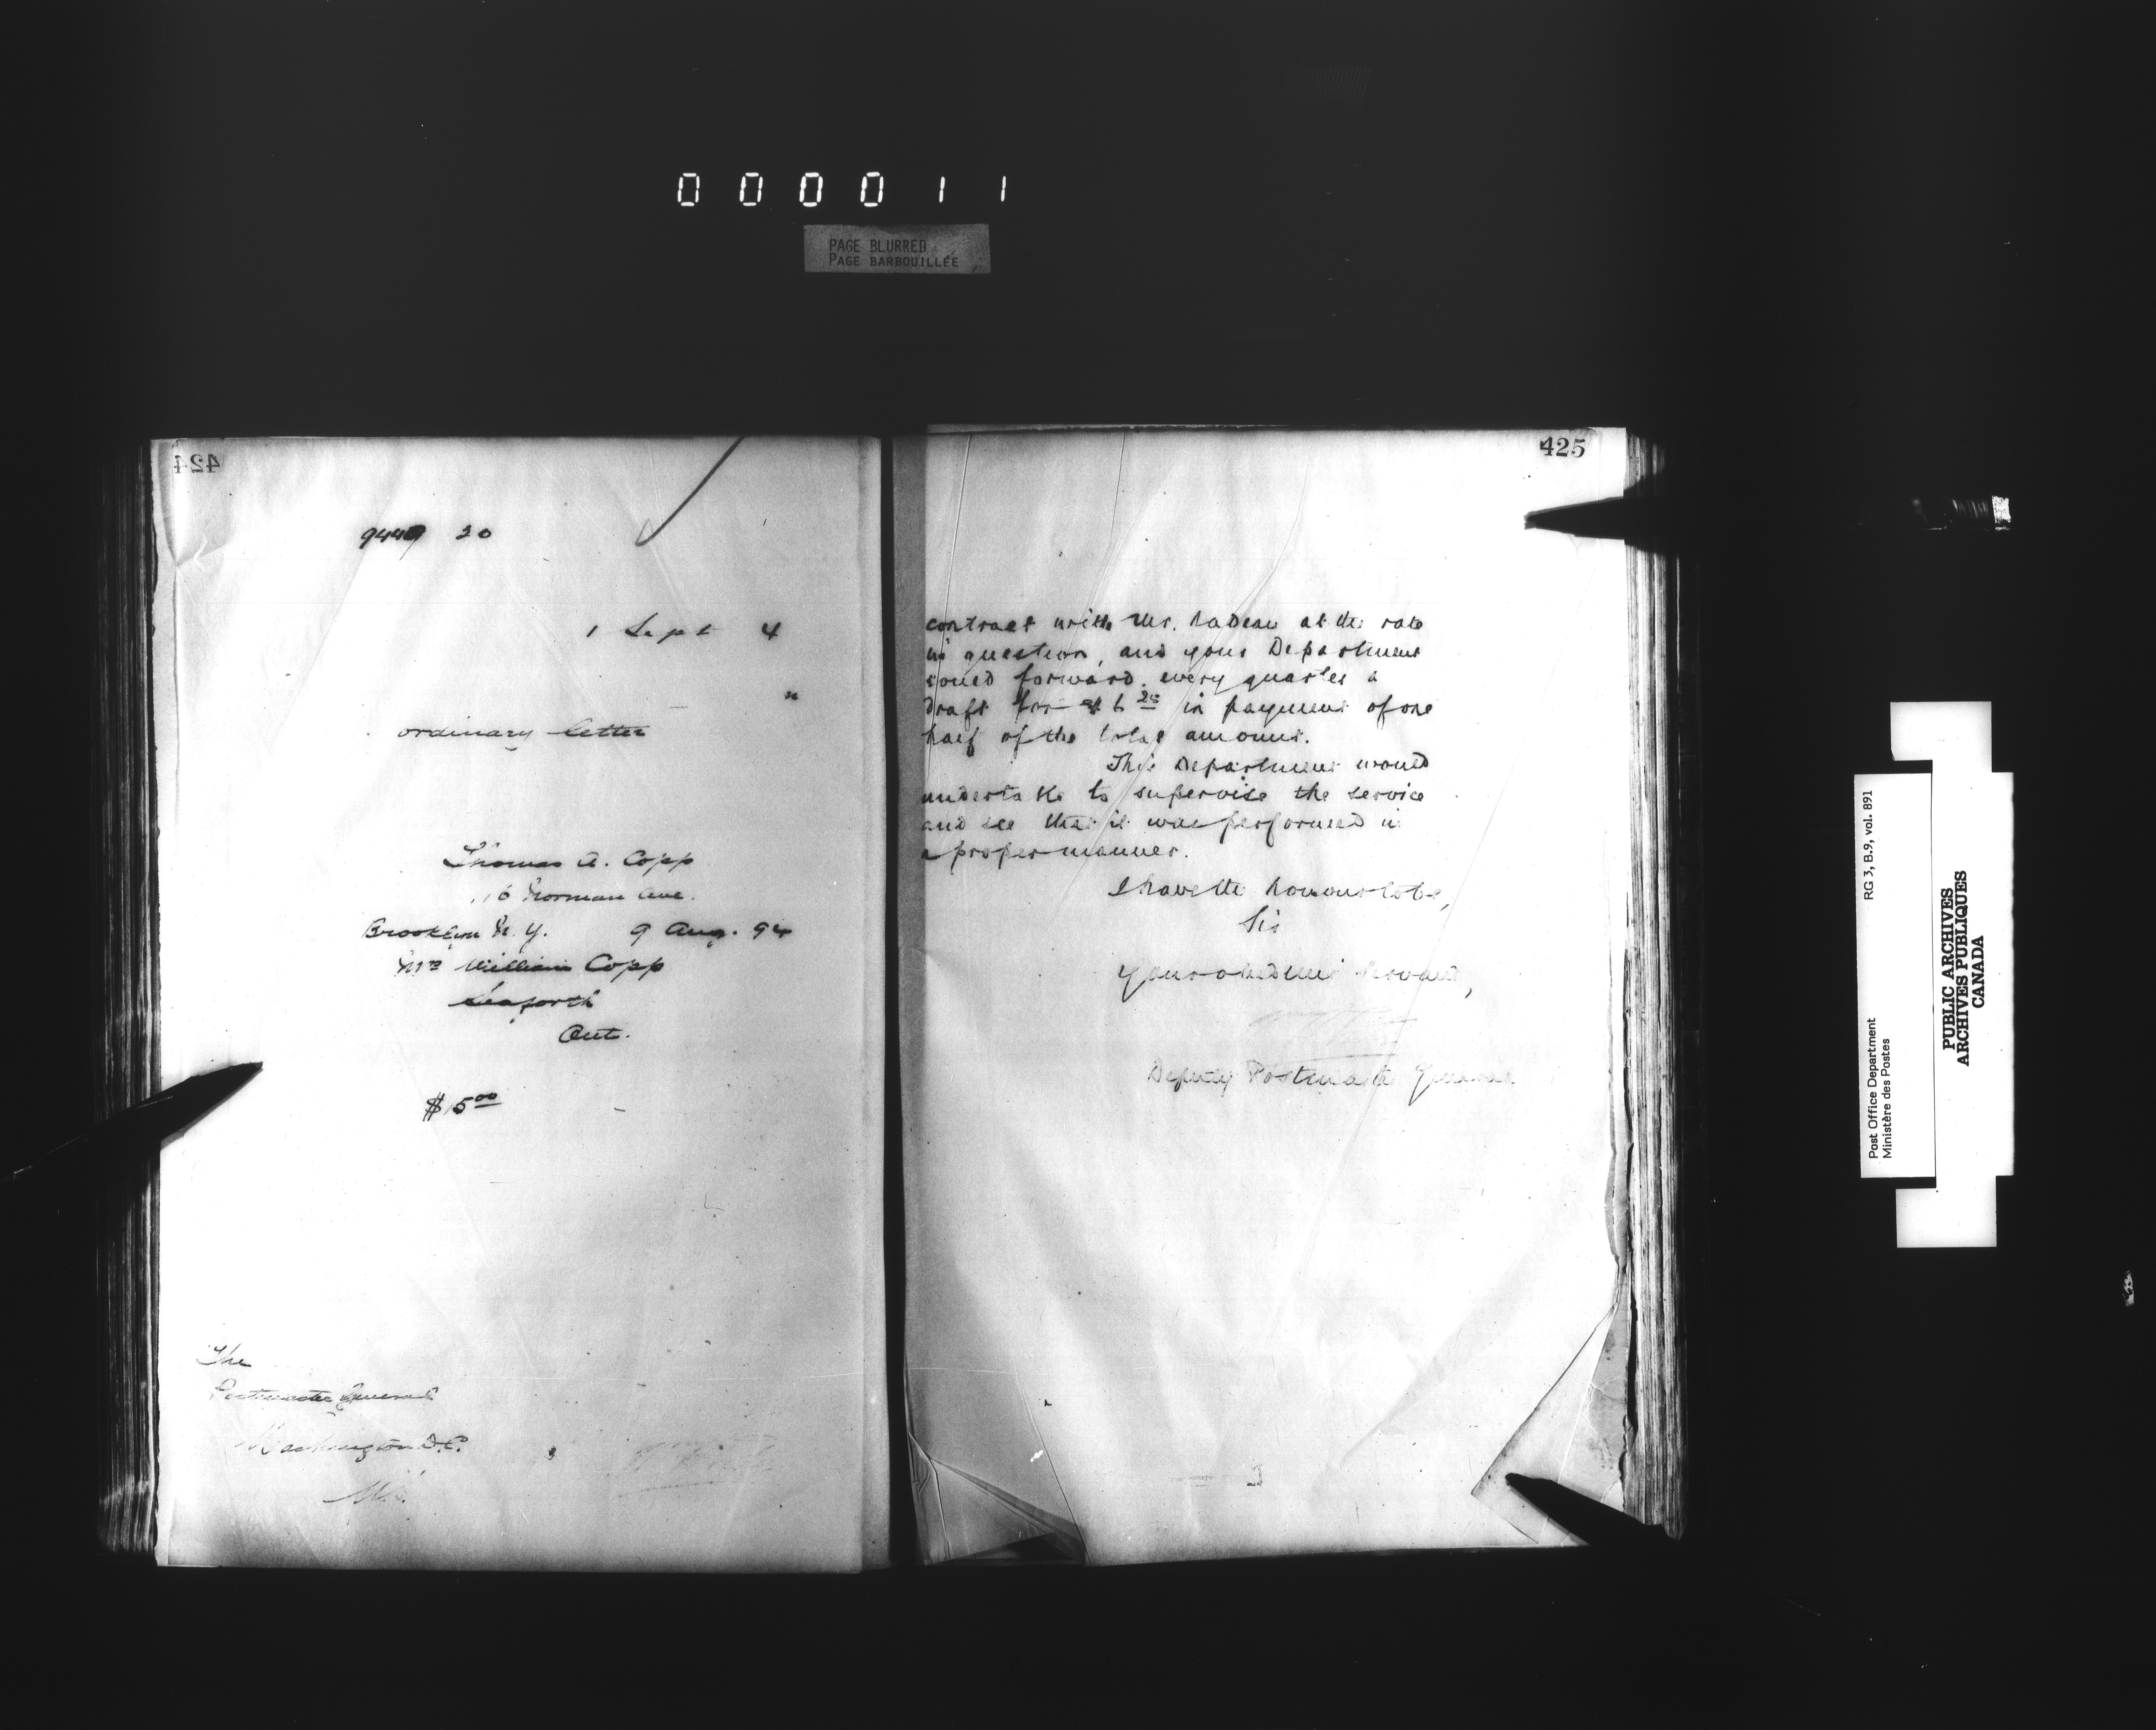 000011
PAGE BLURRED
PAGE BARBOUILLÉE
424
20
1 Sept 4
"
ordinary letter
Thomas A. Copp
Norman Ave.
Brooklyn N. Y. 9 Aug. 94
Mrs William Copp
Seaforth
Ont.
$15 00
The
Postmaster General
Washington D.C.
425
contract with Mr. Nadeau at the rate
in question, and your Department
could forward every quarter a
draft for $6 25 in payment of one
half of the total amount.
This Department would
undertake to supervise the service
and see that it was performed in
a proper manner.
I have the honour to be,
Sir
Your obedient Servant,
Deputy Postmaster General
Post Office Department RG 3, B.9, vol. 891
Ministère des Postes
PUBLIC ARCHIVES
ARCHIVES PUBLIQUES
CANADA